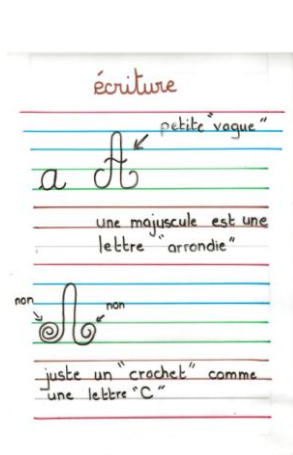 écriture
petite "vague"
a A
une majuscule est une
lettre "arrondie"
non
non
juste un "crochet" comme
une lettre "C"